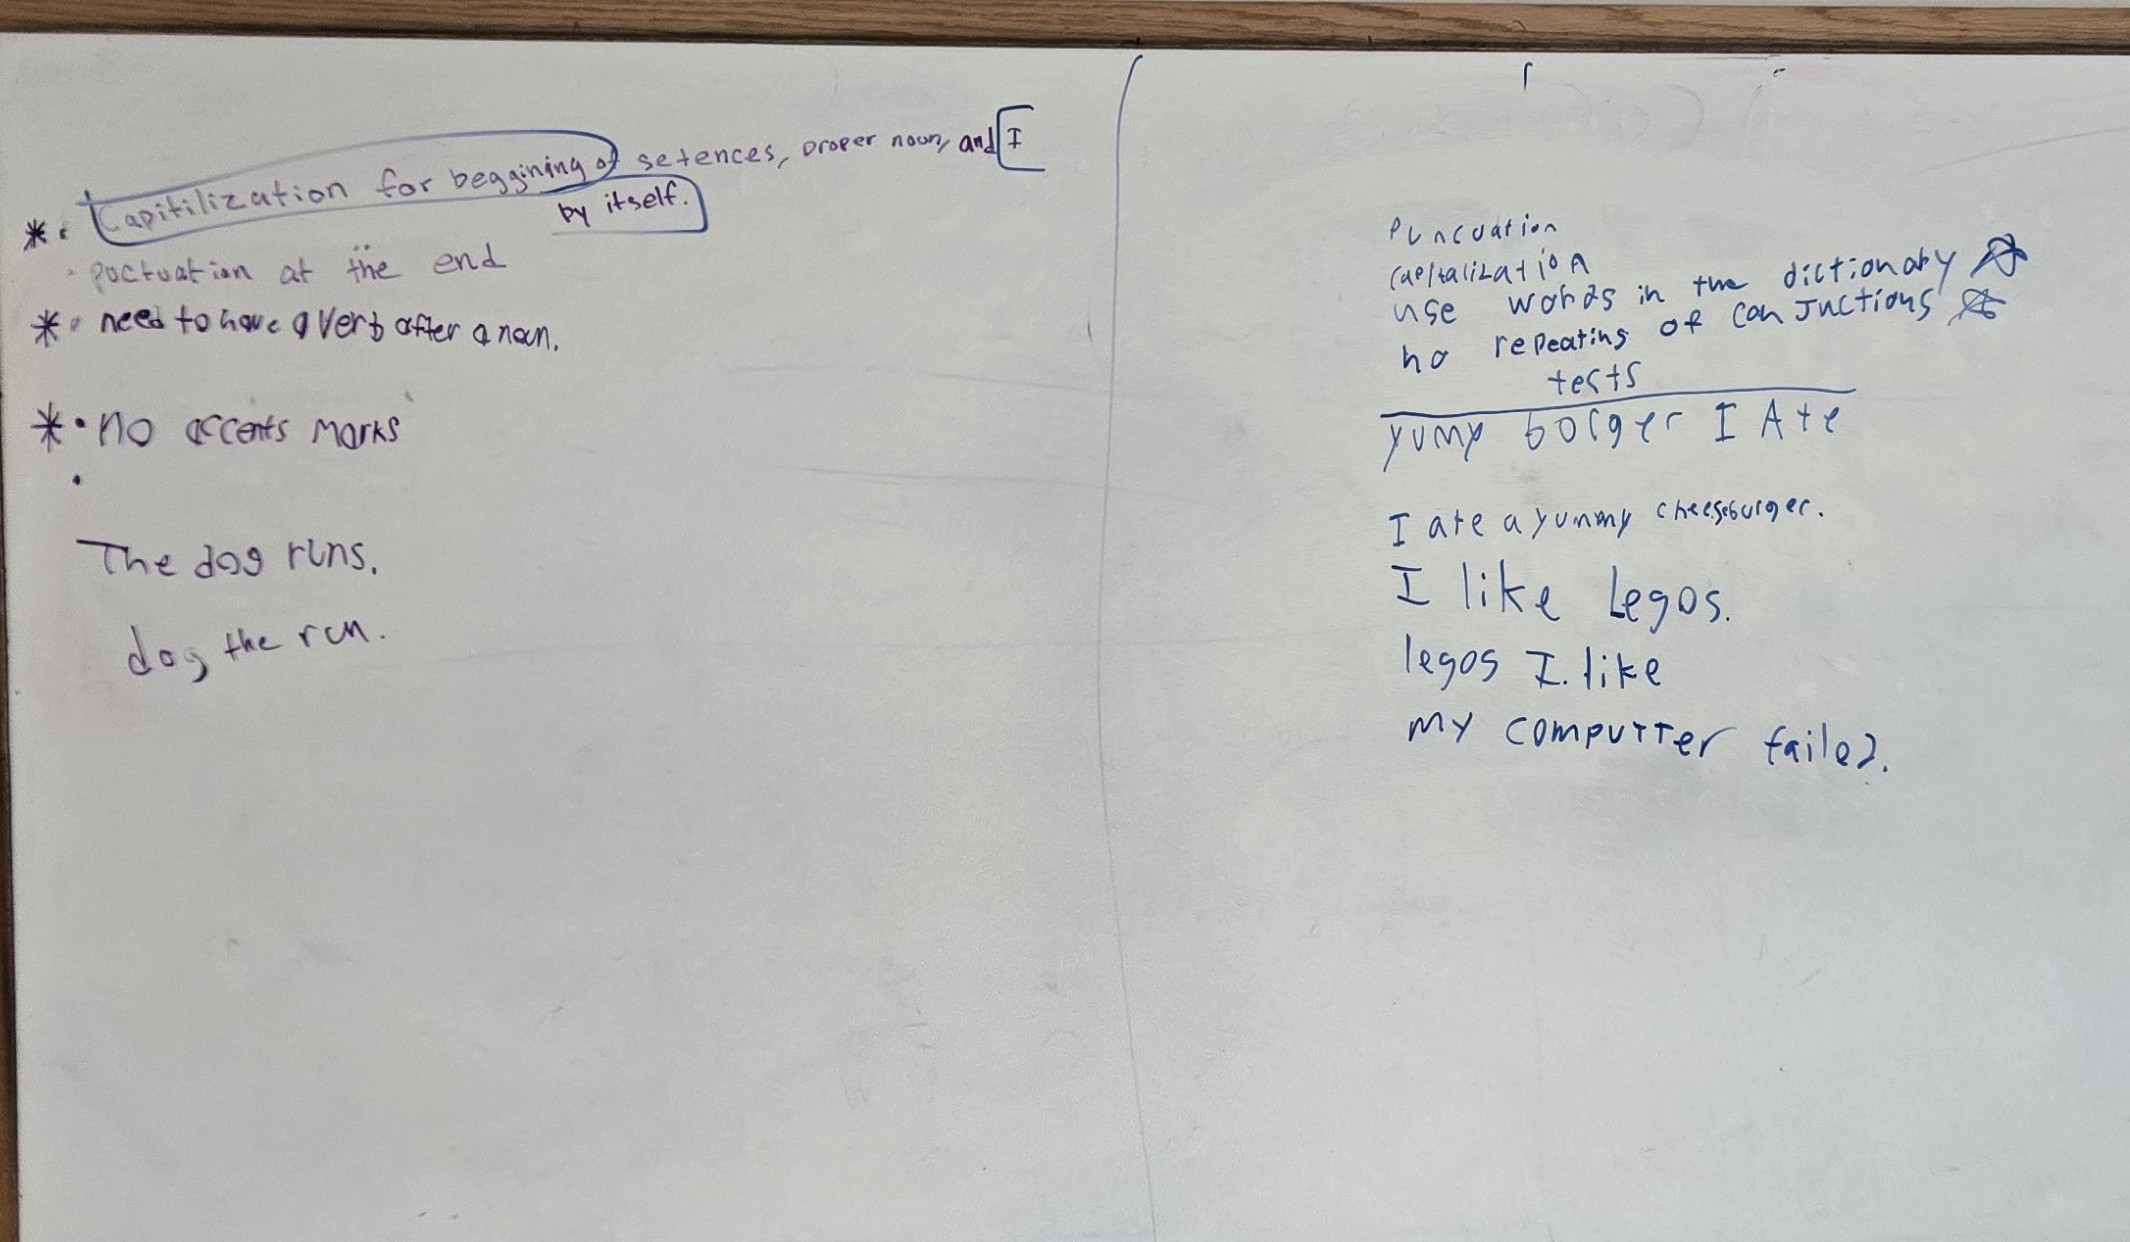 * · Capitilization for beggining of setences, proper noun, and I
by itself.
· puctuation at the end
* · need to have a verb after a noun.
* · no accents marks
·
The dog runs.
dog the run.
Puncuation
capitalization
use words in the dictionary ☆
no repeating of conjuctions ☆
tests
yumy borger I Ate
I ate a yummy cheeseburger.
I like Legos.
legos I. like
my computter failed.